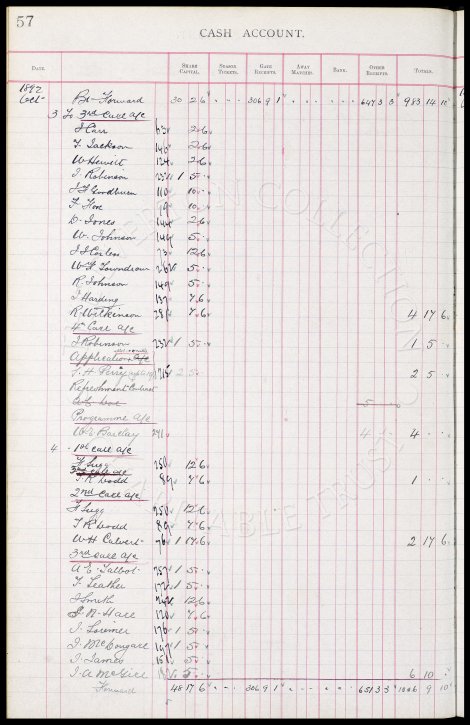 57
CASH ACCOUNT.
DATE. SHARE CAPITAL. SEASON TICKETS. GATE RECEIPTS. AWAY MATCHES. BANK. OTHER RECEIPTS. TOTALS.
1892
Oct Bt Forward 30 2 6 306 9 1 647 3 3 983 14 10
3 To 3rd Call a/c
J Carr 63 2 6
T. Jackson 2 6
W Hewitt 124 2 6
J. Robinson 232 1 5
J F Goodburn 110 10
F. Fox 79 10
D. Jones 144 2 6
W. Johnson 2 5
J J Corless 73 12 6
W F Towndrow 5
R. Johnson 149 5
J Harding 137 7 6
R. Wilkinson 28 7 6 4 17 6
4th Call a/c
J Robinson 232 1 5 1 5
Application a/c
2 5 2 5
Refreshment Contract
5
Programme a/c
Barclay 241 4 4
4 1st Call a/c
F Lugg 250 12 6
3rd Call a/c
T. R Dodd 89 7 6 1
2nd Call a/c
F Lugg 250 12 6
T R Dodd 89 7 6
W H Calvert 76 1 17 6 2 17 6
3rd Call a/c
A E. Talbot 257 1 5
T. Leather 172 1 5
J Smith 12 6
N Hall 120 7 6
J. Lorimer 176 1 5
J. McConyarl 197 1 5
J. James 151 5
J. A McGill 5 6 10
Forward 48 17 6 306 9 1 651 3 3 1006 9 10